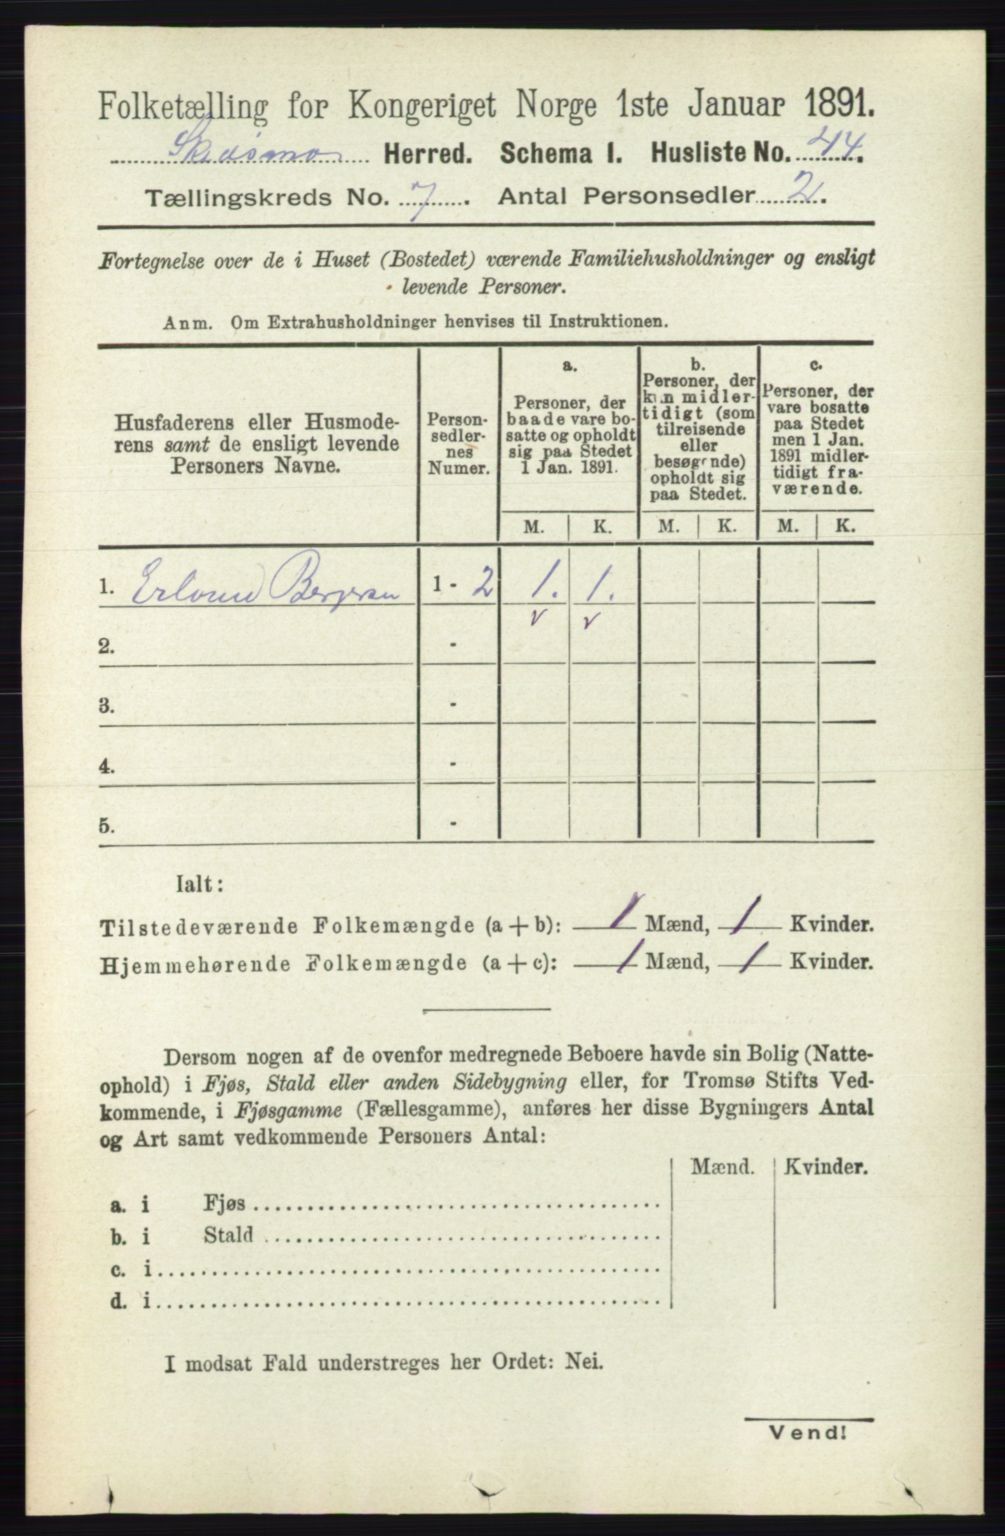 Folketælling for Kongeriget Norge 1ste Januar 1891.
Skedsmo Herred. Schema I. Husliste No. 44.
Tællingskreds No. 7. Antal Personsedler 2.
Fortegnelse over de i Huset (Bostedet) værende Familiehusholdninger og ensligt
levende Personer.
Anm. Om Extrahusholdninger henvises til Instruktionen.
Husfaderens eller Husmode-
rens samt de ensligt levende
Personers Navne.
Person-
sedler-
nes
Numer.
a.
Personer, der
baade vare bo-
satte og opholdt
sig paa Stedet
1 Jan. 1891.
b.
Personer, der
kun midler-
tidigt (som
tilreisende
eller
besøgende)
opholdt sig
paa Stedet.
c.
Personer, der
vare bosatte
paa Stedet
men 1 Jan.
1891 midler-
tidigt fra-
værende.
M. K. M. K. M. K.
1. Bergersen 1 - 2 1. 1.
2. -
3. -
4. -
5. -
Ialt:
Tilstedeværende Folkemængde (a+b): 1 Mænd, 1 Kvinder.
Hjemmehørende Folkemængde (a+c): 1 Mænd, 1 Kvinder.
Dersom nogen af de ovenfor medregnede Beboere havde sin Bolig (Natte-
ophold) i Fjøs, Stald eller anden Sidebygning eller, for Tromsø Stifts Ved-
kommende, i Fjøsgamme (Fællesgamme), anføres her disse Bygningers Antal
og Art samt vedkommende Personers Antal:
Mænd. Kvinder.
a. i Fjøs
b. i Stald
c. i
d. i
I modsat Fald understreges her Ordet: Nei.
Vend!